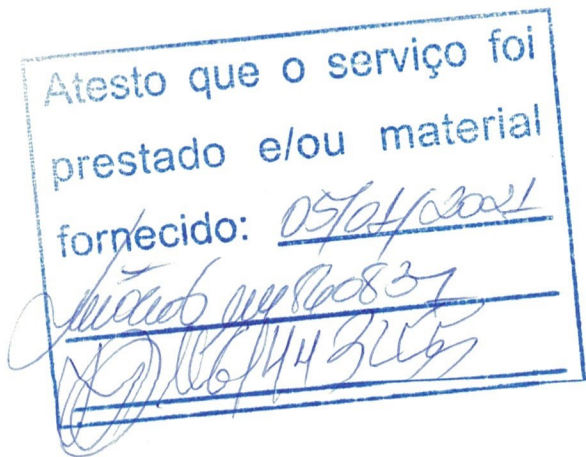 Atesto que o serviço foi
prestado e/ou material
fornecido: 05/01/2021
860837